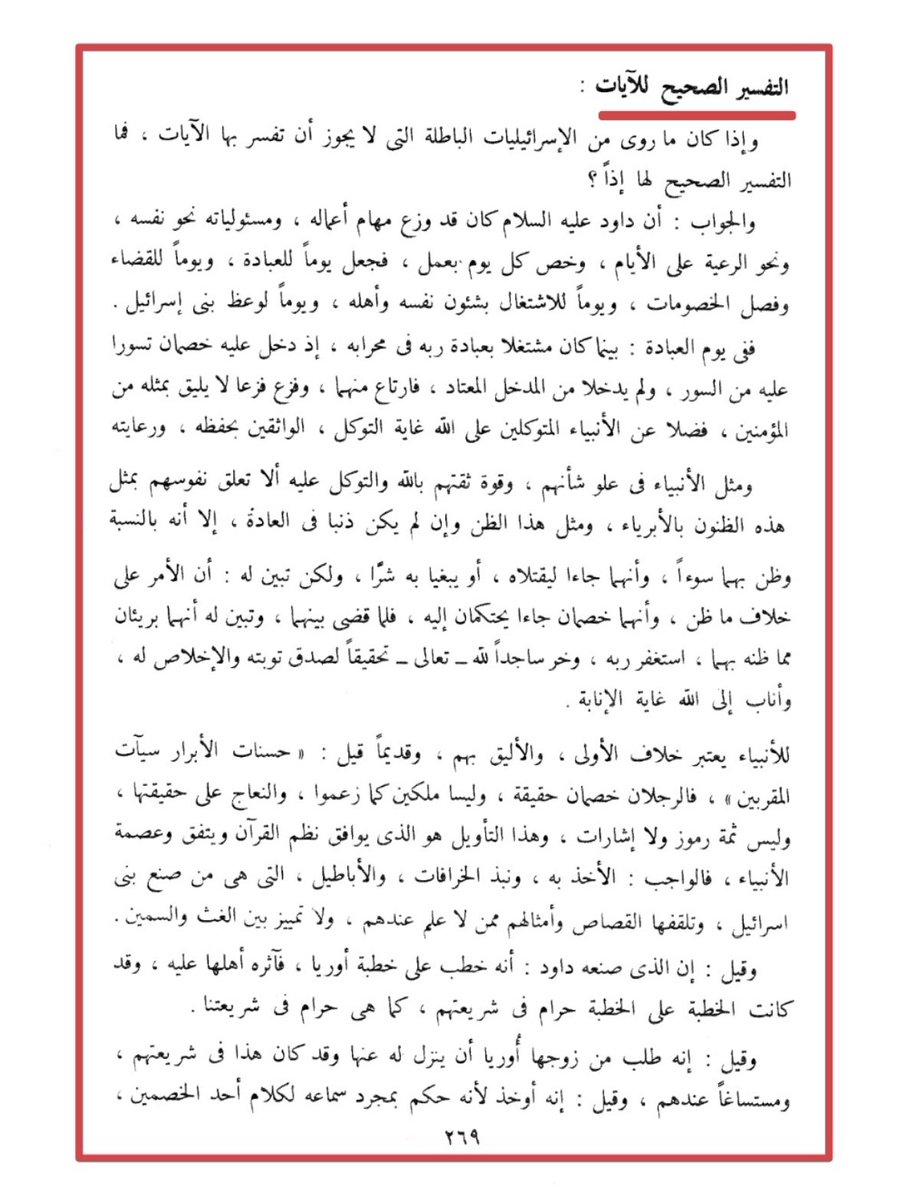 التفسير الصحيح للآيات :
وإذا كان ما روى من الإسرائيليات الباطلة التى لا يجوز أن تفسر بها الآيات ، فما
التفسير الصحيح لها إذاً ؟
والجواب : أن داود عليه السلام كان قد وزع مهام أعماله ، ومسئولياته نحو نفسه ،
ونحو الرعية على الأيام ، وخص كل يوم بعمل ، فجعل يوماً للعبادة ، ويوماً للقضاء
وفصل الخصومات ، ويوماً للاشتغال بشئون نفسه وأهله ، ويوماً لوعظ بنى إسرائيل .
ففى يوم العبادة : بينما كان مشتغلا بعبادة ربه فى محرابه ، إذ دخل عليه خصمان تسورا
عليه من السور ، ولم يدخلا من المدخل المعتاد ، فارتاع منهما ، وفزع فزعا لا يليق بمثله من
المؤمنين ، فضلا عن الأنبياء المتوكلين على الله غاية التوكل ، الواثقين بحفظه ، ورعايته
ومثل الأنبياء فى علو شأنهم ، وقوة ثقتهم بالله والتوكل عليه ألا تعلق نفوسهم بمثل
هذه الظنون بالأبرياء ، ومثل هذا الظن وإن لم يكن ذنبا فى العادة ، إلا أنه بالنسبة
وظن بهما سوءاً ، وأنهما جاءا ليقتلاه ، أو يبغيا به شرًّا ، ولكن تبين له : أن الأمر على
خلاف ما ظن ، وأنهما خصمان جاءا يحتكمان إليه ، فلما قضى بينهما ، وتبين له أنهما بريئان
مما ظنه بهما ، استغفر ربه ، وخر ساجداً لله ــ تعالى ــ تحقيقاً لصدق توبته والإخلاص له ،
وأناب إلى الله غاية الإنابة .
للأنبياء يعتبر خلاف الأولى ، والأليق بهم ، وقديماً قيل : « حسنات الأبرار سيآت
المقربين » ، فالرجلان خصمان حقيقة ، وليسا ملكين كما زعموا ، والنعاج على حقيقتها ،
وليس ثمة رموز ولا إشارات ، وهذا التأويل هو الذى يوافق نظم القرآن ويتفق وعصمة
الأنبياء ، فالواجب : الأخذ به ، ونبذ الخرافات ، والأباطيل ، التى هى من صنع بنى
اسرائيل ، وتلقفها القصاص وأمثالهم ممن لا علم عندهم ، ولا تمييز بين الغث والسمين .
وقيل : إن الذى صنعه داود : أنه خطب على خطبة أوريا ، فآثره أهلها عليه ، وقد
كانت الخطبة على الخطبة حرام فى شريعتهم ، كما هى حرام فى شريعتنا .
وقيل : إنه طلب من زوجها أُوريا أن ينزل له عنها وقد كان هذا فى شريعتهم ،
ومستساغاً عندهم ، وقيل : إنه أوخذ لأنه حكم بمجرد سماعه لكلام أحد الخصمين ،
٢٦٩